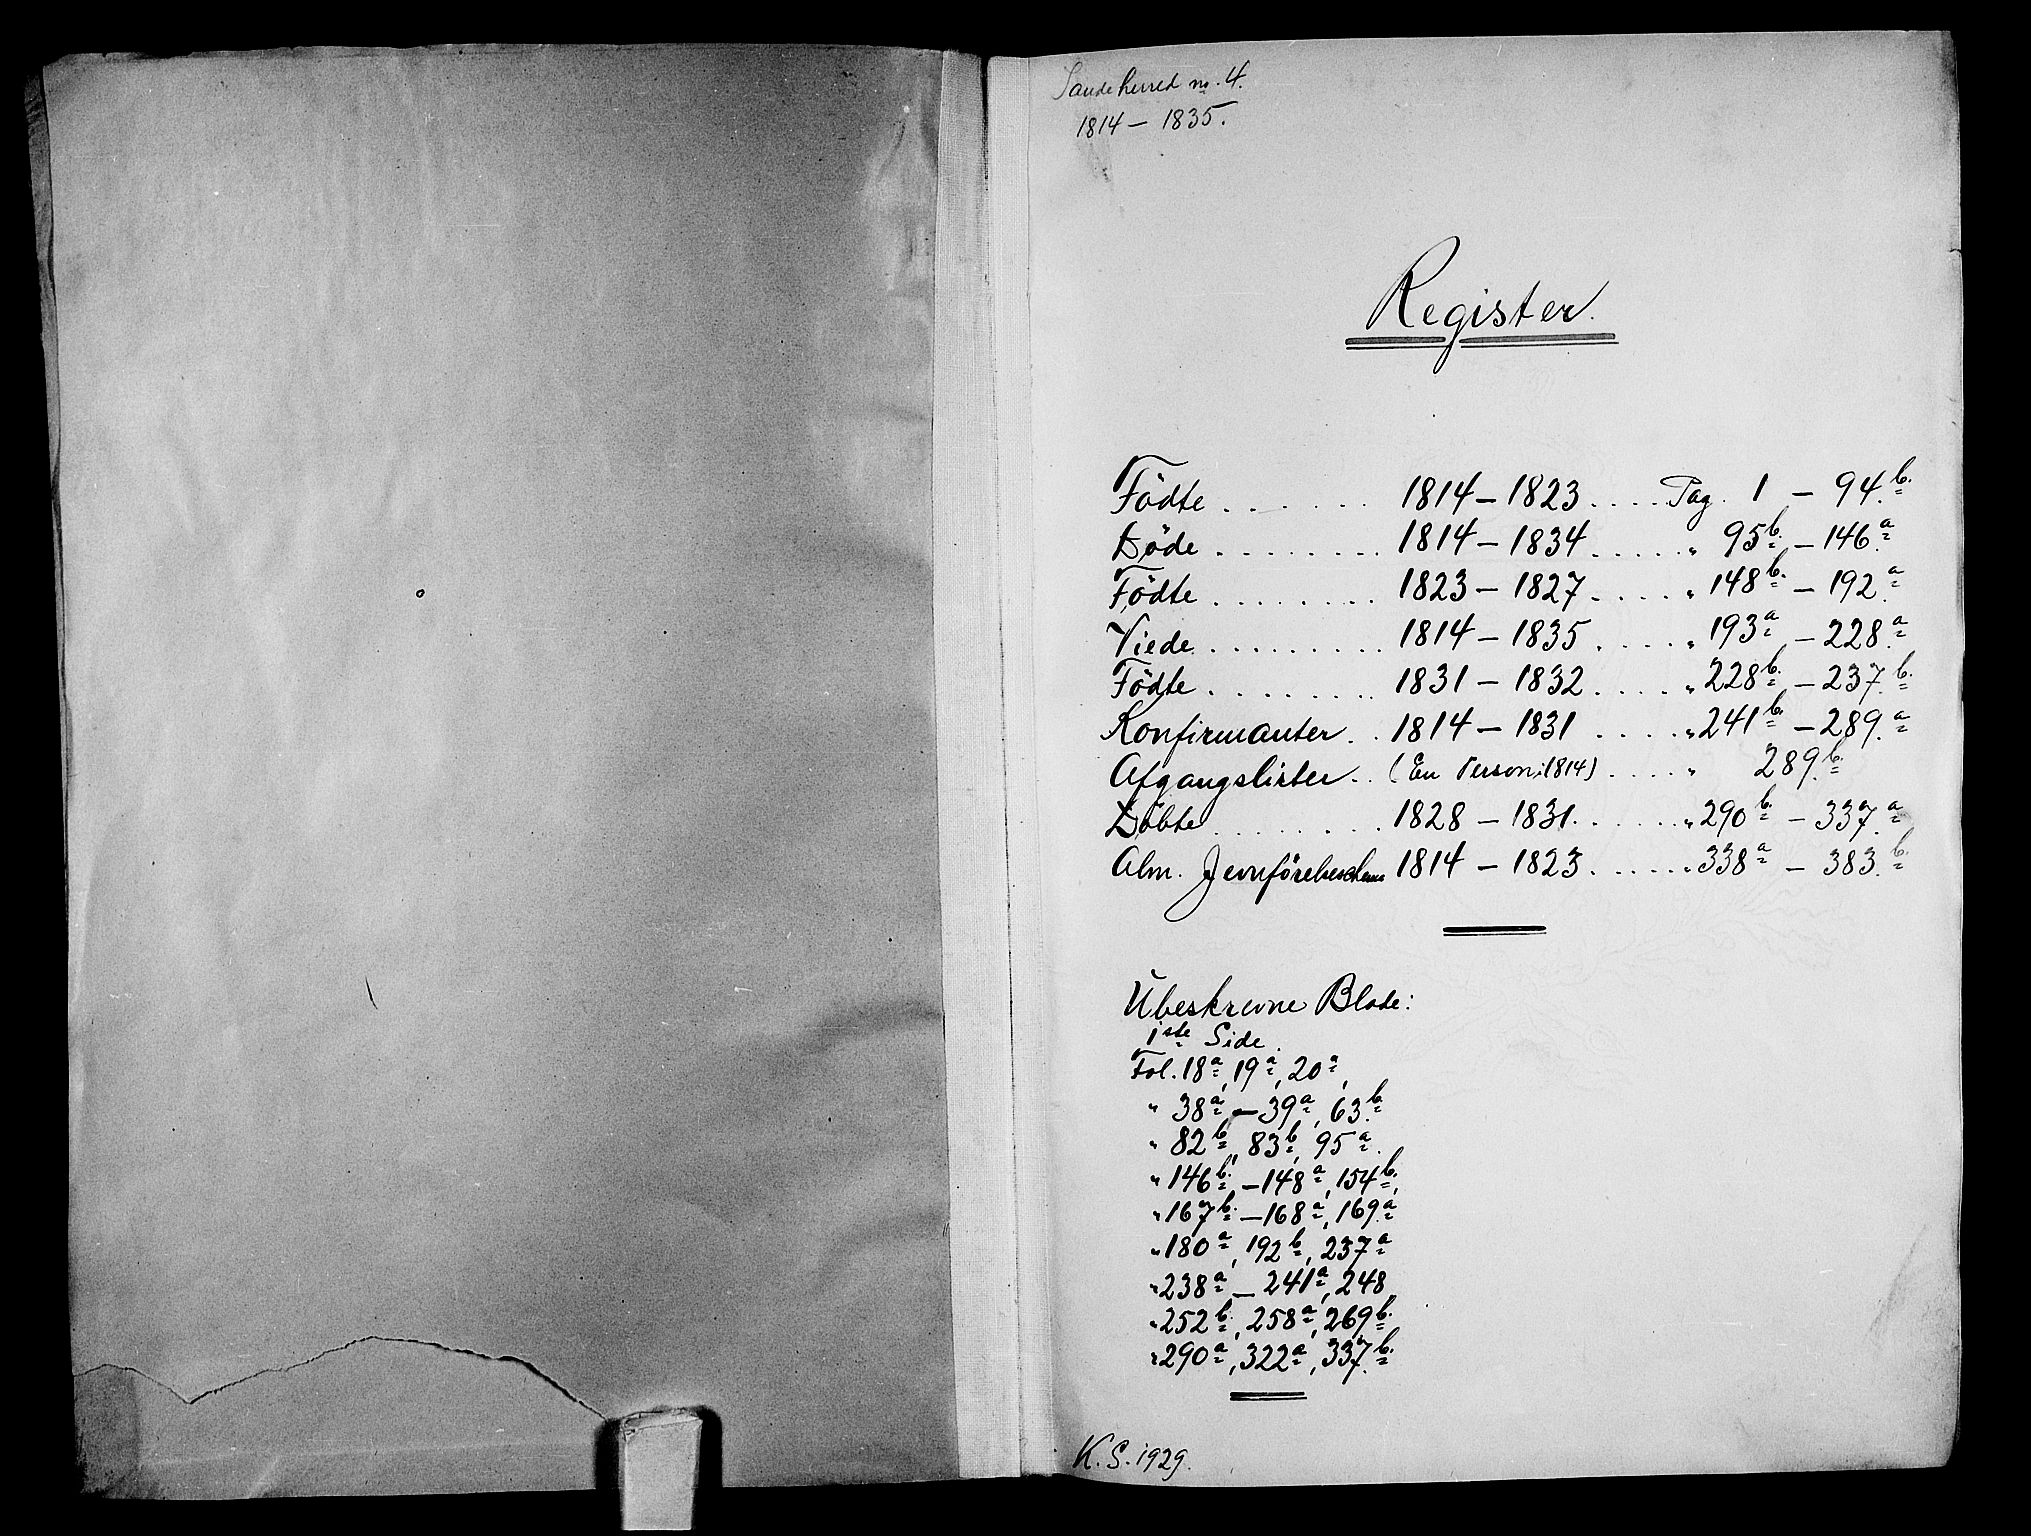 Sandeherred no. 4.
1814 – 1835.
Register.
Födte . . . . . . 1814 – 1823 . . . . Pag. 1 – 94.b.
Döde . . . . . . . . 1814 – 1834 . . . . . " 95b. – 146.a
Födte . . . . . . . . 1823 – 1827 . . . . . " 148b. – 192.a
Viede . . . . . . . . . 1814 – 1835 . . . . . " 193a – 228.a
Födte . . . . . . . . 1831 – 1832 . . . . . " 228b. – 237.b.
Konfirmanter . . 1814 – 1831 . . . . . " 241b. – 289.a
Afgangslister . . (En Person i 1814) . . . . " 289.b.
Döbte . . . . . . . . 1828 – 1831 . . . . . . " 290b. – 337.a
Alm. Jevnförelseschema 1814 – 1823 . . . . . " 338a – 383.b.
Ubeskrevne Blade:
1ste Side.
Fol. 18a, 19a, 20a,
" 38a, – 39a, 63.b.
" 82b., 83b, 95a.
" 146b. – 148a, 154b.,
" 167b. – 168a, 169.a
" 180a, 192b, 237a
" 238a – 241a, 248,
" 252b., 258a, 269b.
" 290a, 322a, 337.b.
K. S. 1929.